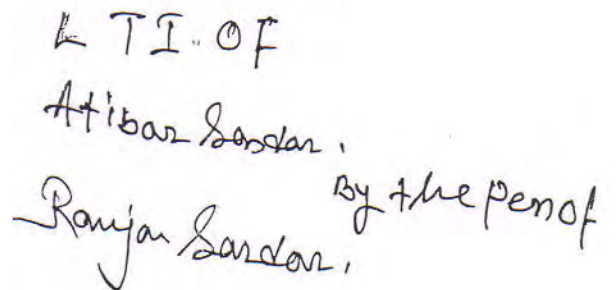 L T I. OF
Atibar Sardar.
By the pen of
Ranjan Sardar.